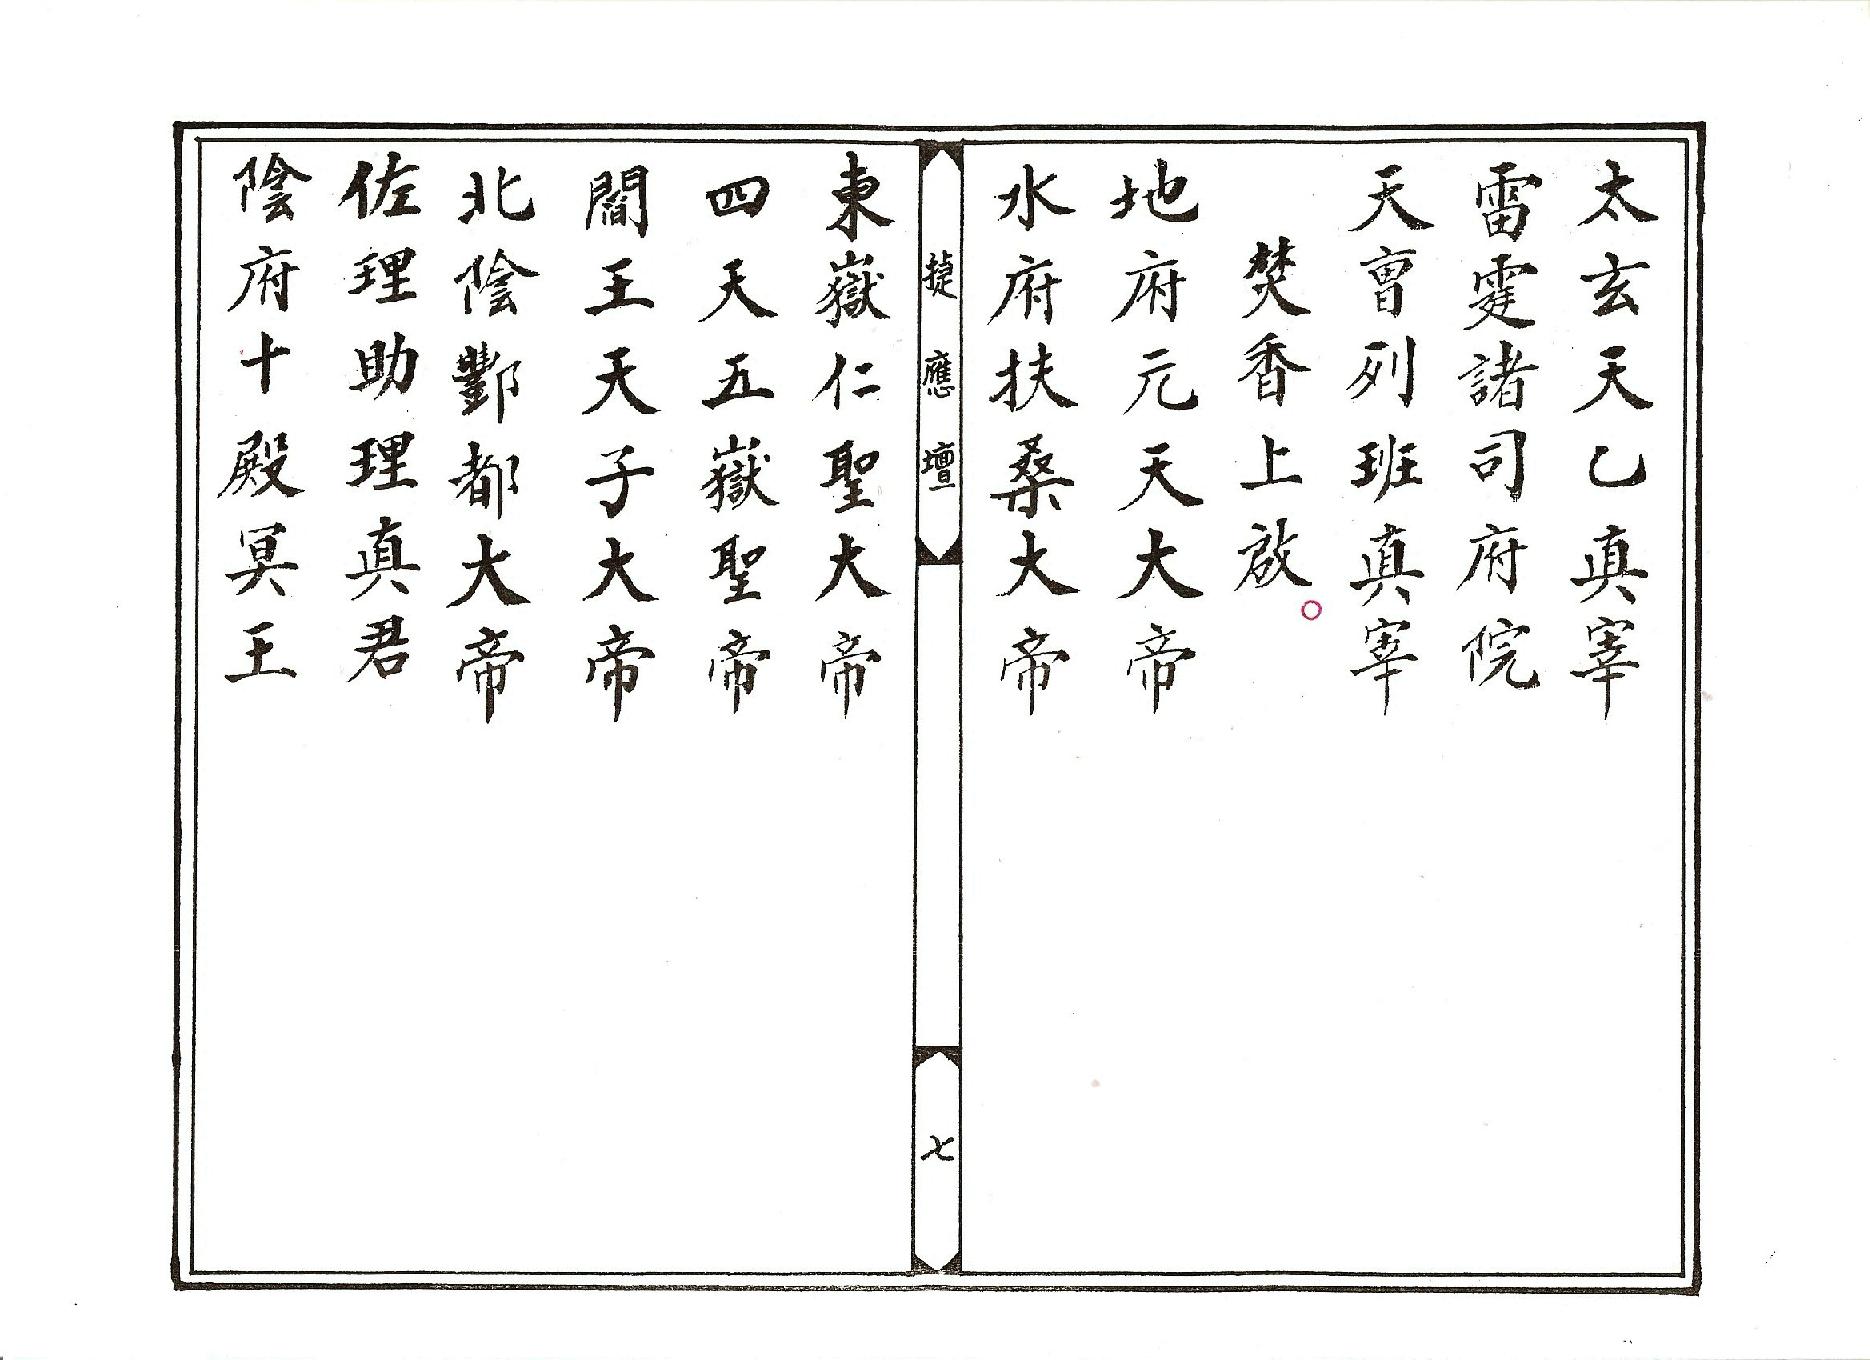 太玄天乙真宰
雷霆諸司府院
天曺列班真宰
焚香上啟。
地府元天大帝
水府扶桑大帝
捷應壇
七
東嶽仁聖大帝
四天五嶽聖帝
閻王天子大帝
北陰酆都大帝
佐理助理真君
陰府十殿冥王